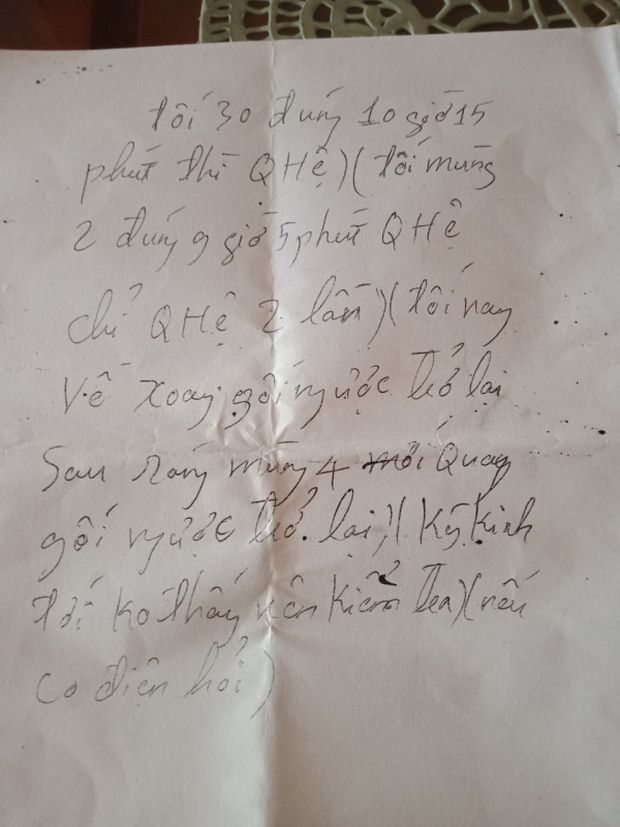 tối 30 đúng 10 giờ 15
phút thì QHệ)(tối mùng
2 đúng 9 giờ 5 phút QHệ
chỉ QHệ 2 lần)(tối nay
Về xoay gối ngược trở lại
Sau sáng mùng 4 mới Quay
gối ngược trở lại)(Kỳ Kinh
tới Ko thấy nên Kiểm tra)(nếu
Co điện hỏi)